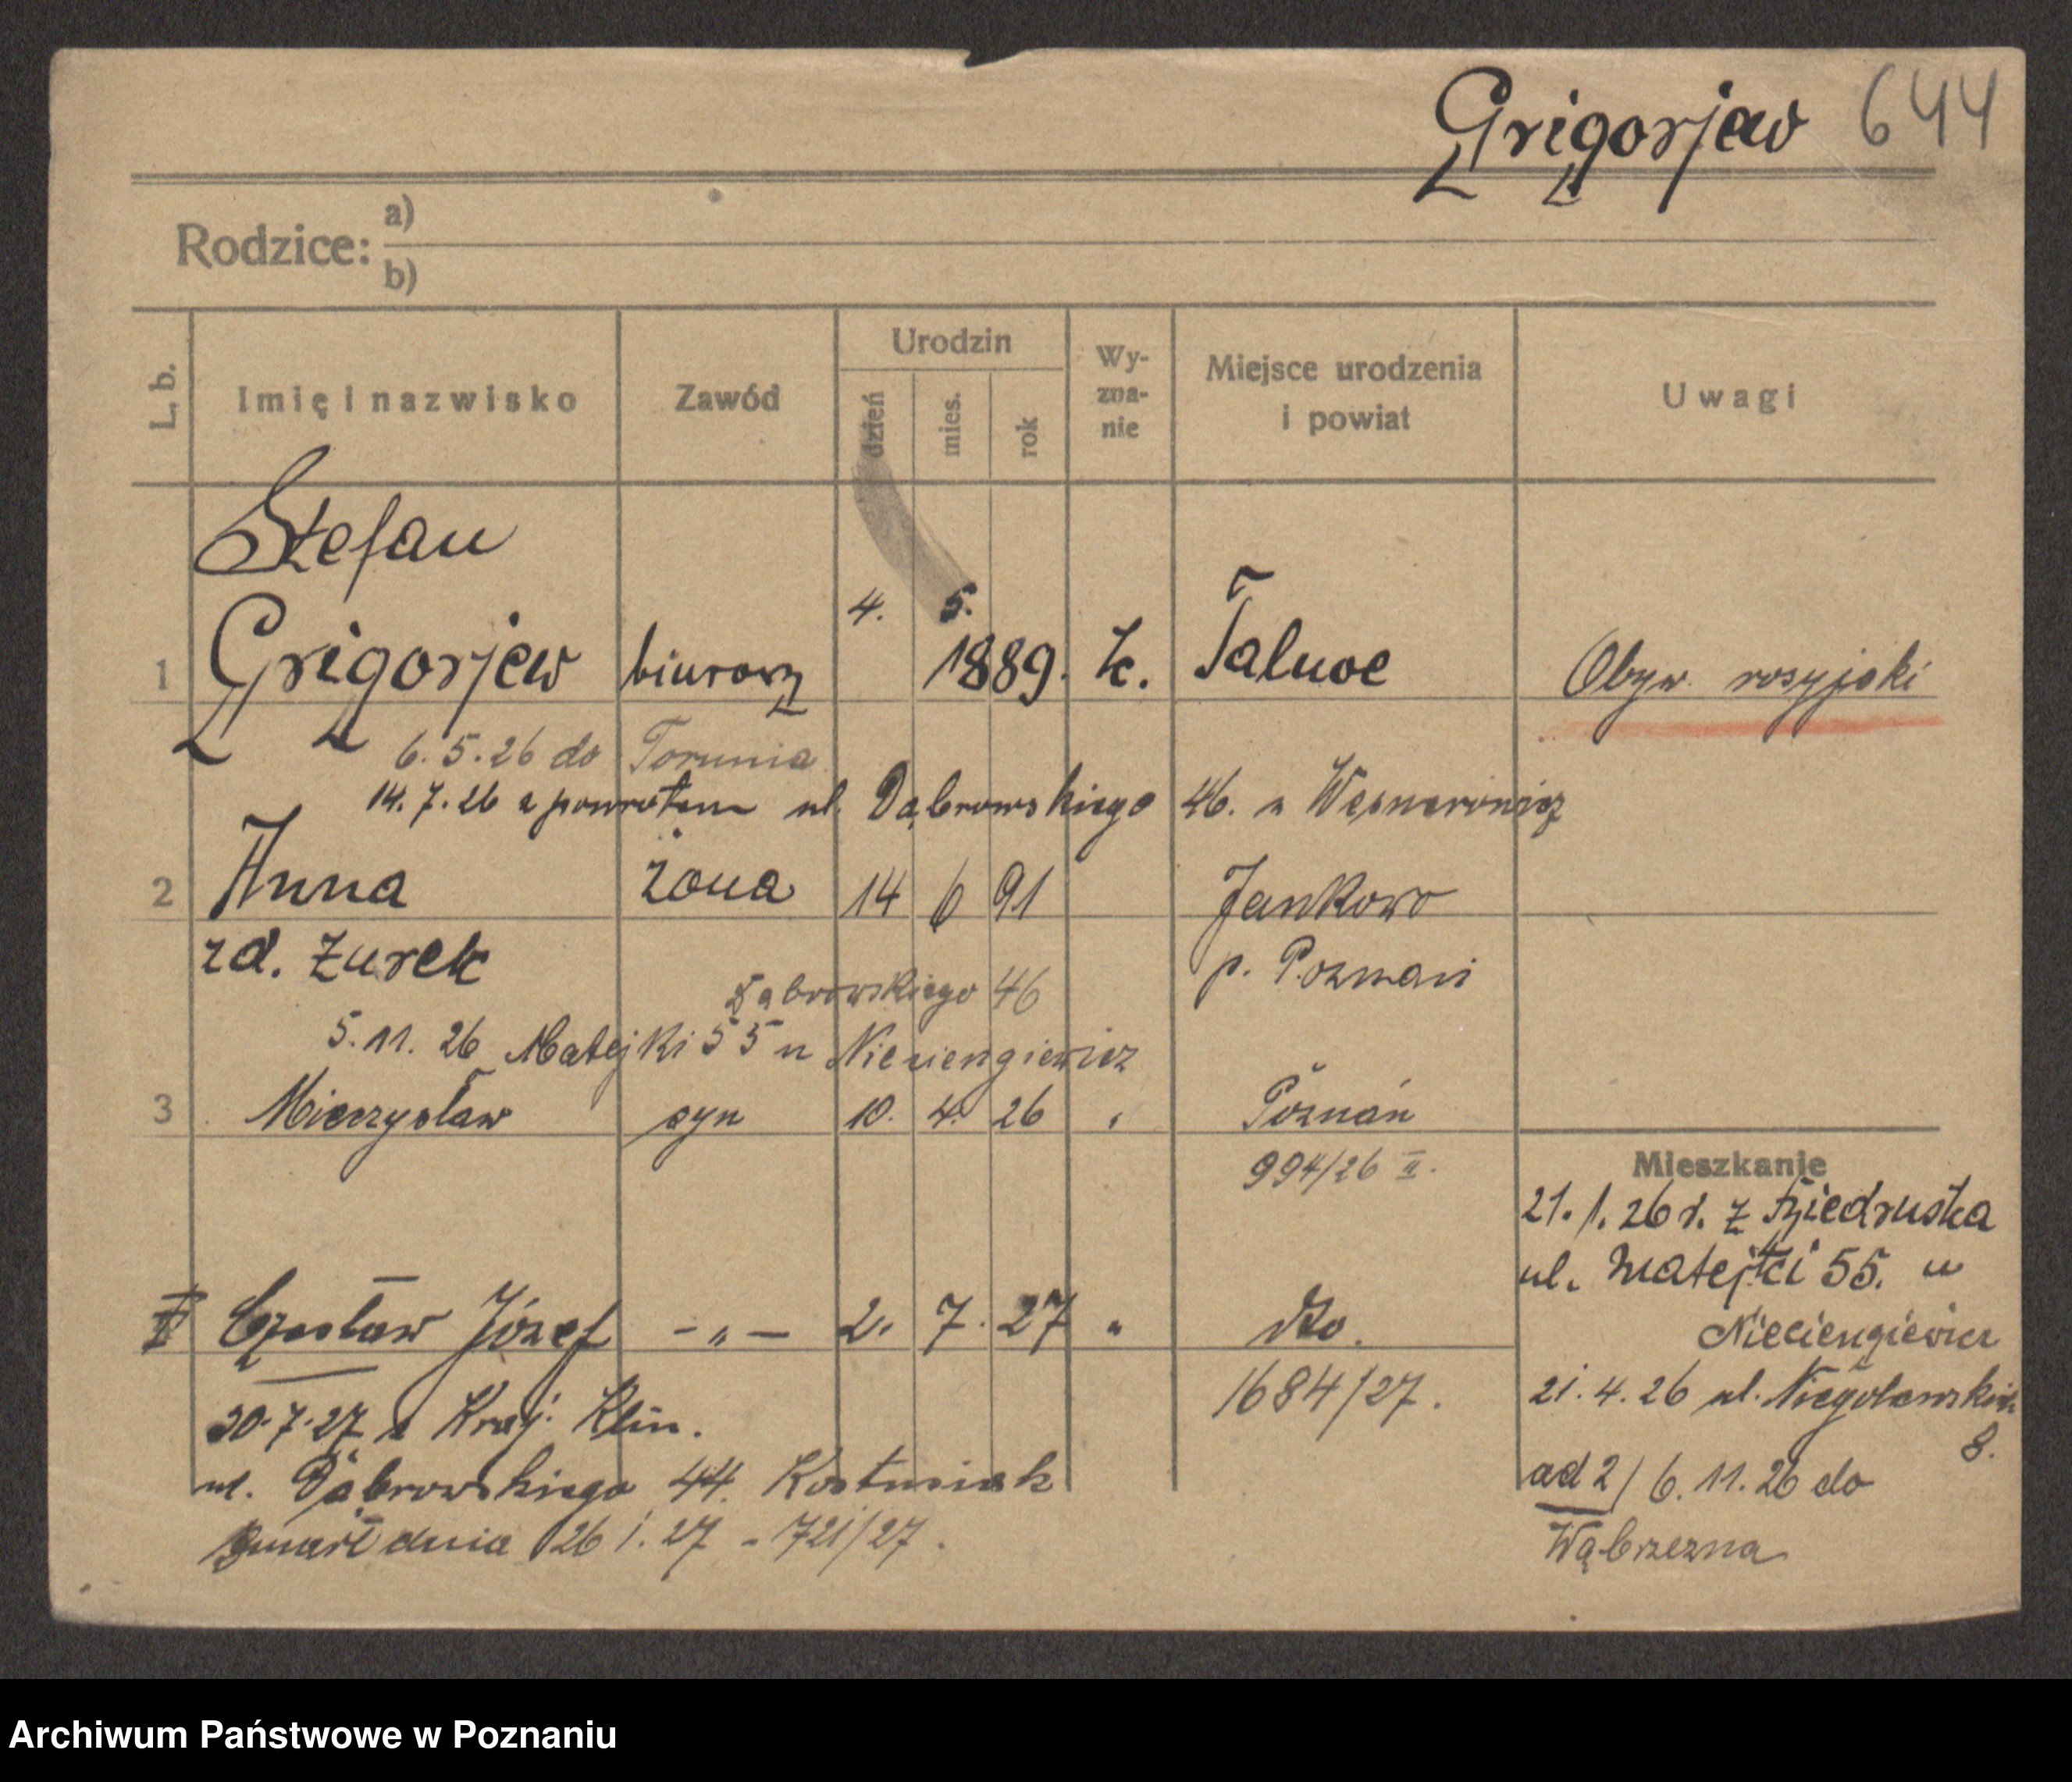 Grigorjew 644
Rodzice: a)
b)
L. b. Imię i nazwisko Zawód Urodzin dzień mies. rok Wy-zna-nie Miejsce urodzenia i powiat Uwagi
Stefan
1 Grigorjew biurowy 4. 5. 1889. k. Talnoe Obyw. rosyjski
6.5.26 do Torunia
14.7.26 z powrotem ul. Dąbrowskiego 46. u
2 Anna żona 14 6 91 Jankowo
zd. Żurek p. Poznań
Dąbrowskiego 46
5.11.26 Matejki 55 u Nieciengiewicz
3 Mieczysław syn 10. 4. 26 " Poznań
994/26 II.
Mieszkanie
21.1.26 r. z Biedruska
ul. Matejki 55. u
Nieciengiewicz
21.4.26 ul. Niegolewskich
8.
ad 2/ 6.11.26 do
Wąbrzezna
Czesław Józef -"- 2. 7. 27 " dto.
1684/27.
20.7.27 z Kraj. Klin.
ul. Dąbrowskiego 44. Kostusiak
Zmarł dnia 26 1.27 - 721/27.
Archiwum Państwowe w Poznaniu